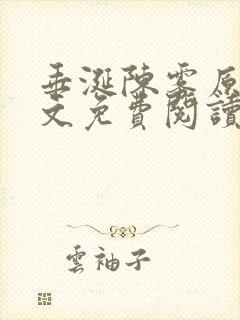 垂涎陳雾原
文免費閱讀
雲袖子